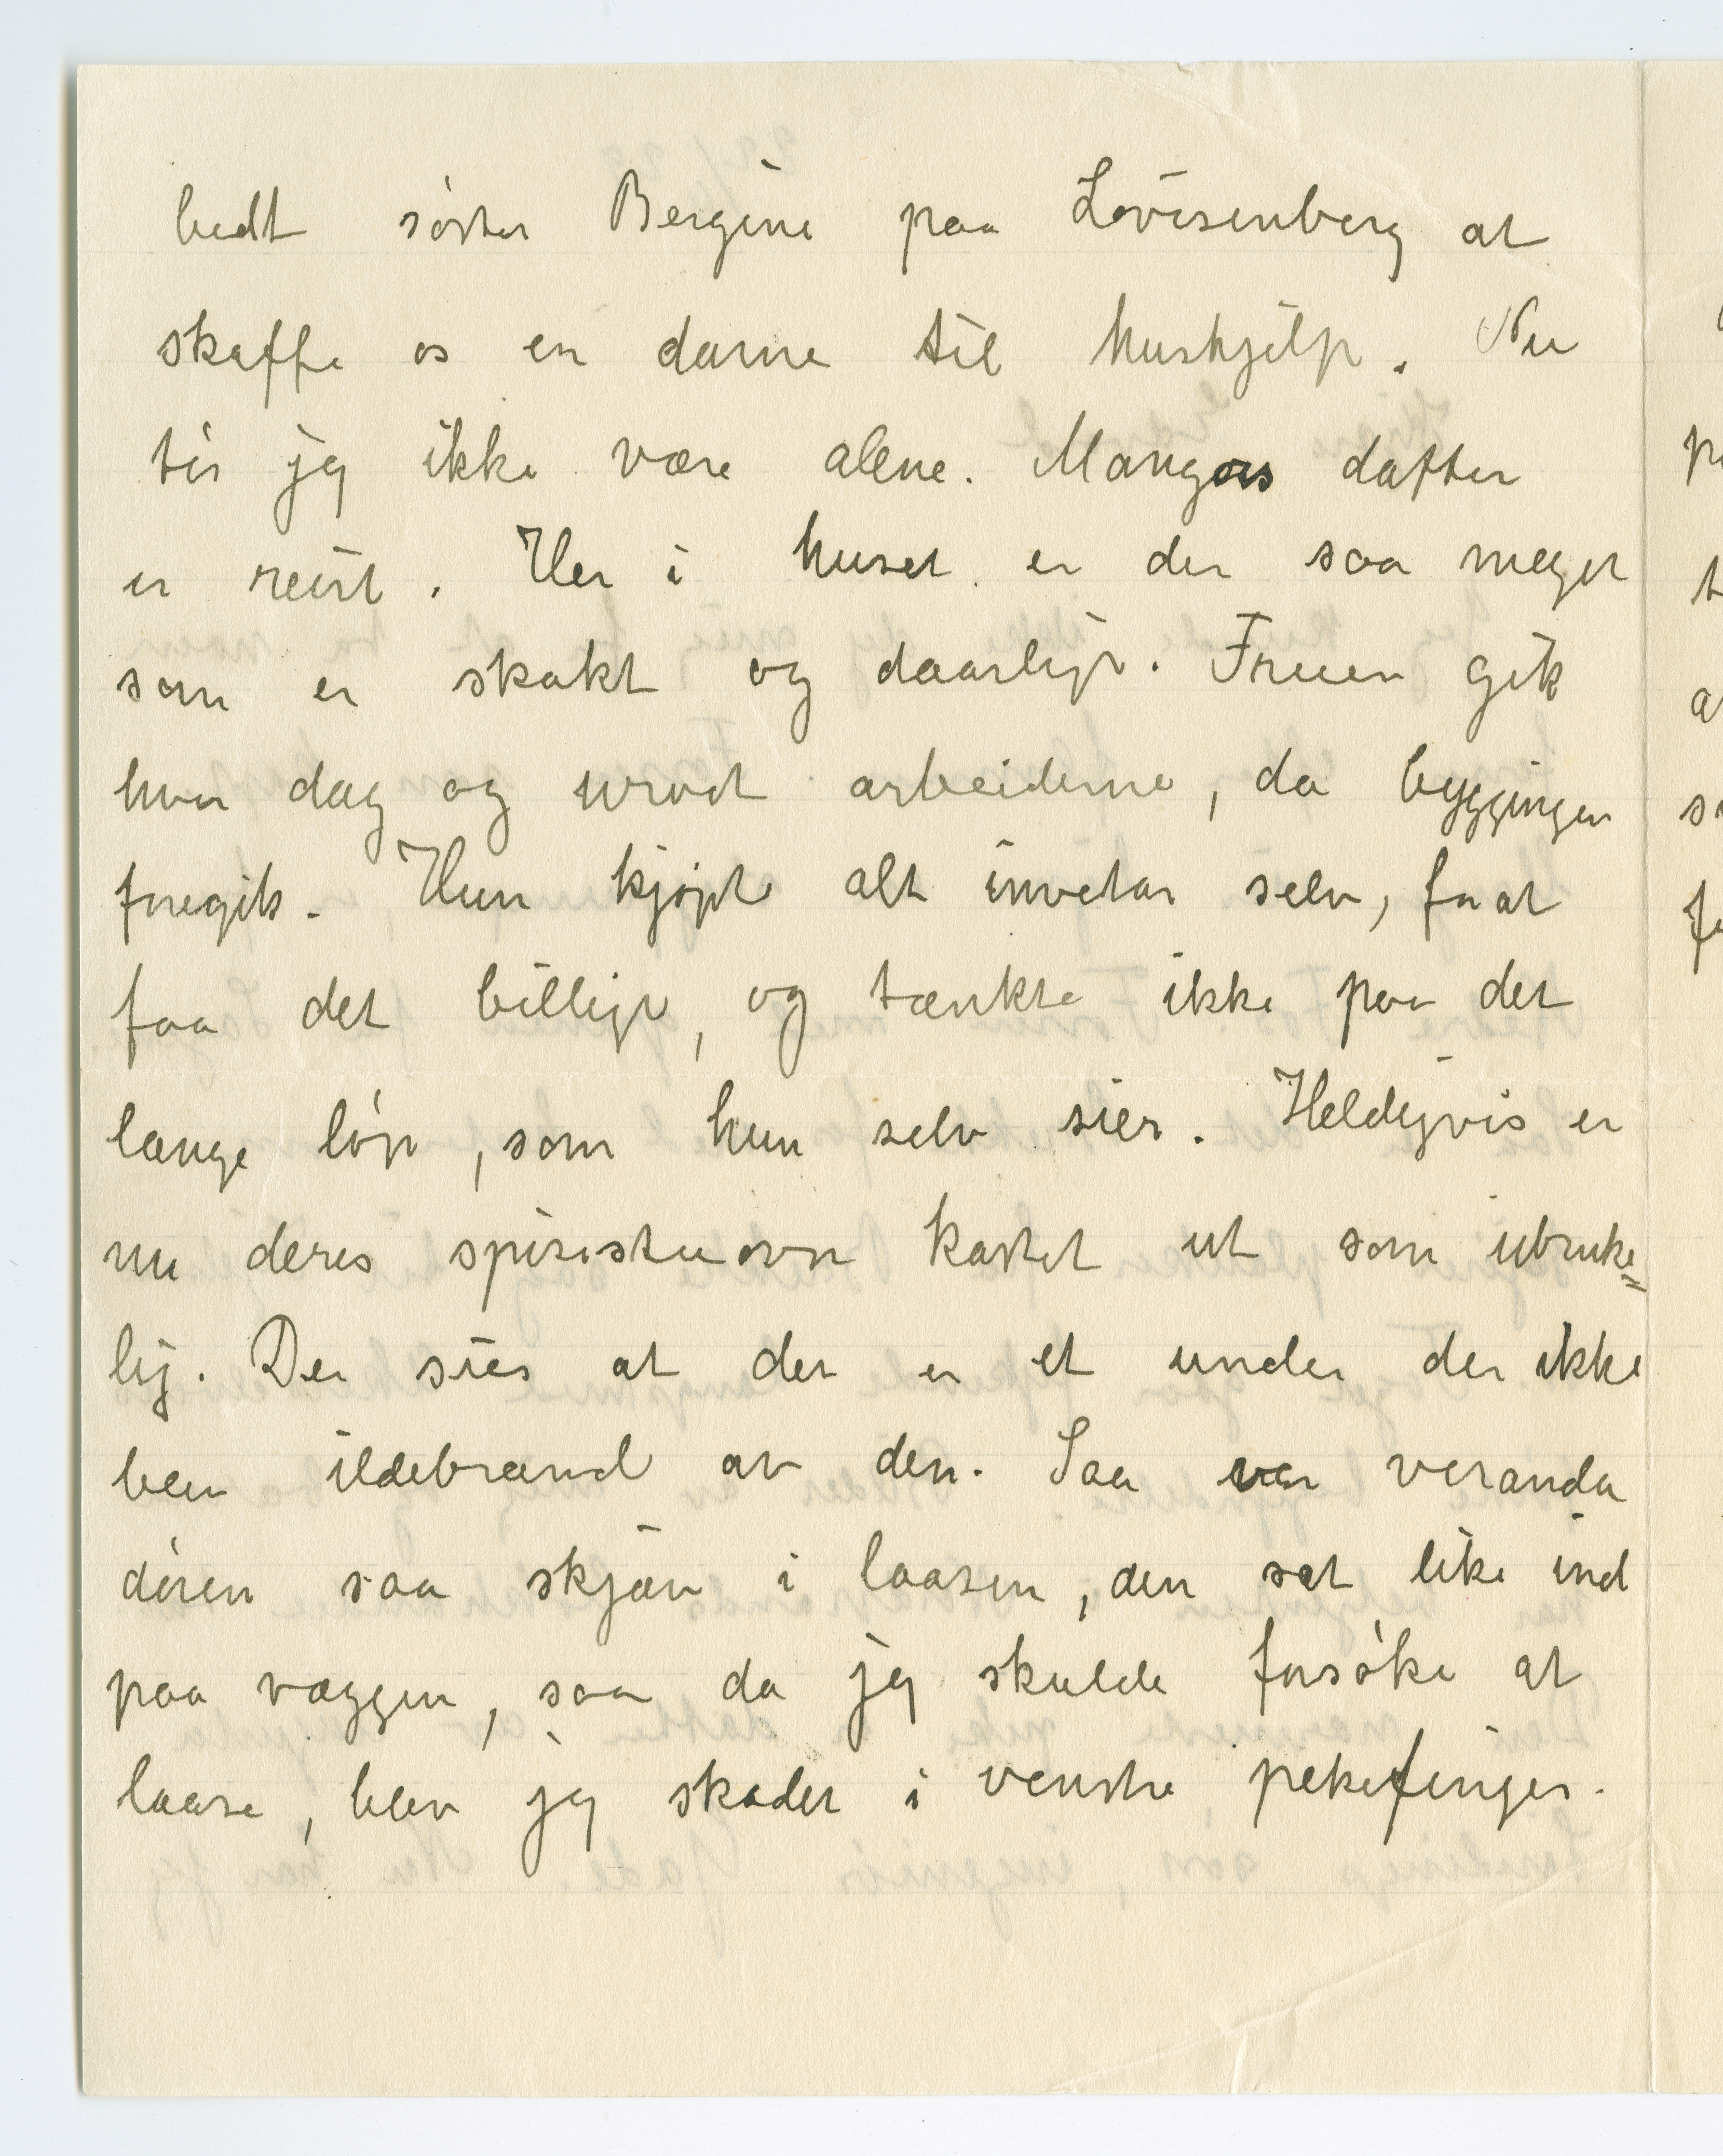 bedt söster Bergine paa Lovisenberg at
skaffe os en dame til hushjelp. Nu
tör jeg ikke være alene. Mangors datter
er reist. Her i huset er der saa meget
som er skakt og daarlige. Fruen gik
hver dag og urod arbeiderne, da byggingen
foregik. Hun kjøpte alt inventar selv, for at
faa det billige, og tænkte ikke paa det
lange löp, som hun selv sier. Heldigvis er
nu deres spisestueovn kastet ut som ubruke=
lig. Der sies at det er et under der ikke
blev ildebrand av den. Saa var veranda
dören saa skjæv i laasen, den sat like ind
paa væggen, saa da jeg skulde forsöke at
laase, blev jeg skadet i venstre pekefinger.